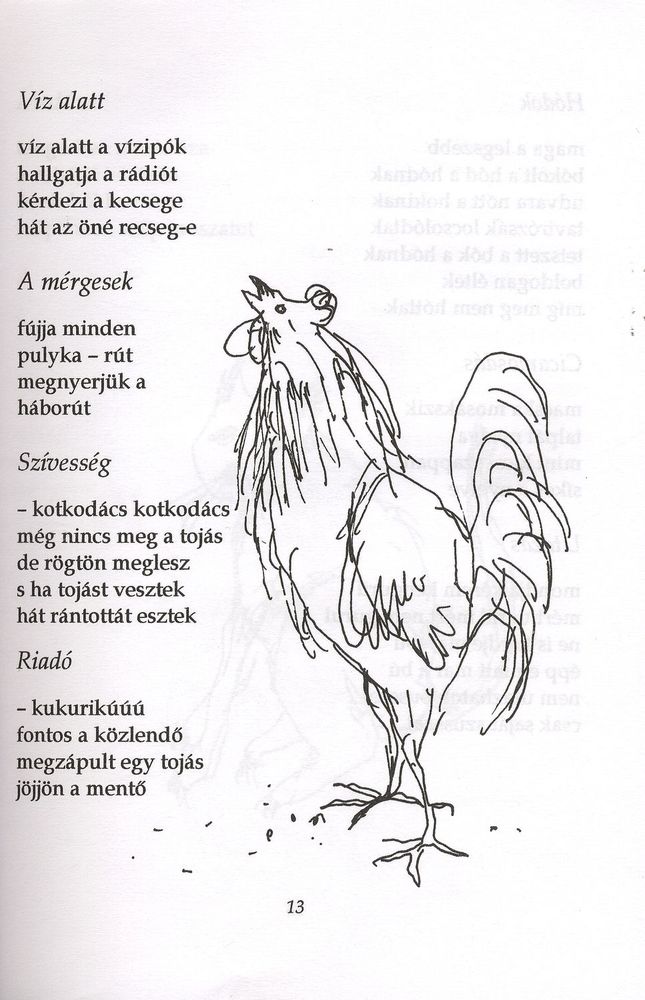 Víz alatt
víz alatt a vízipók
hallgatja a rádiót
kérdezi a kecsege
hát az öné recseg-e
A mérgesek
fújja minden
pulyka – rút
megnyerjük a
háborút
Szívesség
– kotkodács kotkodács
még nincs meg a tojás
de rögtön meglesz
s ha tojást vesztek
hát rántottát esztek
Riadó
– kukurikúúú
fontos a közlendő
megzápult egy tojás
jöjjön a mentő
13